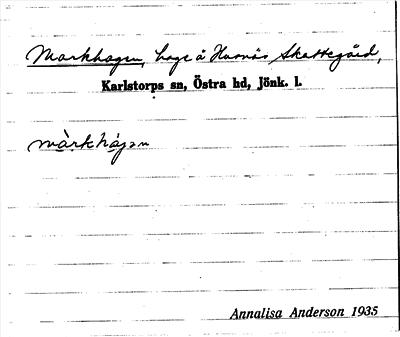 Markhagen, hage å Hurnäs Skattegård,
Karlstorps sn, Östra hd, Jönk. l.
màrkhágən
Annalisa Anderson 1935